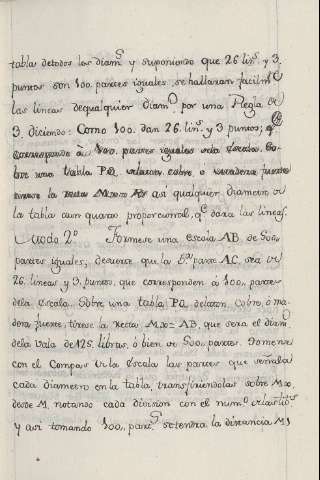 tabla detodos los diams. y suponiendo que 26 lins. y 3.
puntos son 100. partes iguales, se hallaran facilmte.
las lineas dequalquier diamo. por una Regla de
3. diciendo: Como 100. dan 26. lins. y 3 puntos; q
corresponde à 100. partes iguales
una tabla PQ cobre o fuerte
la recta M asi qualquier diametro de
la tabla aun quarto proporcional, qe. dara las lineas.
Modo 2o. Formese una escala AB. de 500.
partes iguales, de suerte que la 5a. parte AC. sea de
26. lineas y 3. puntos, que corresponden á 100. partes
dela escala. Sobre una tabla PQ delaton, cobre, ó ma-
dera fuerte, tirese la recta = AB, que sera el diamo.
dela vala de 125. libras, ó bien de 500. partes. Tomense
con el Compas de la escala las partes que señala
cada diametro en la tabla, transfiriendolas sobre
desde M. notando cada division con el numo.
y asi tomando 100. parts. setendra la distancia M1